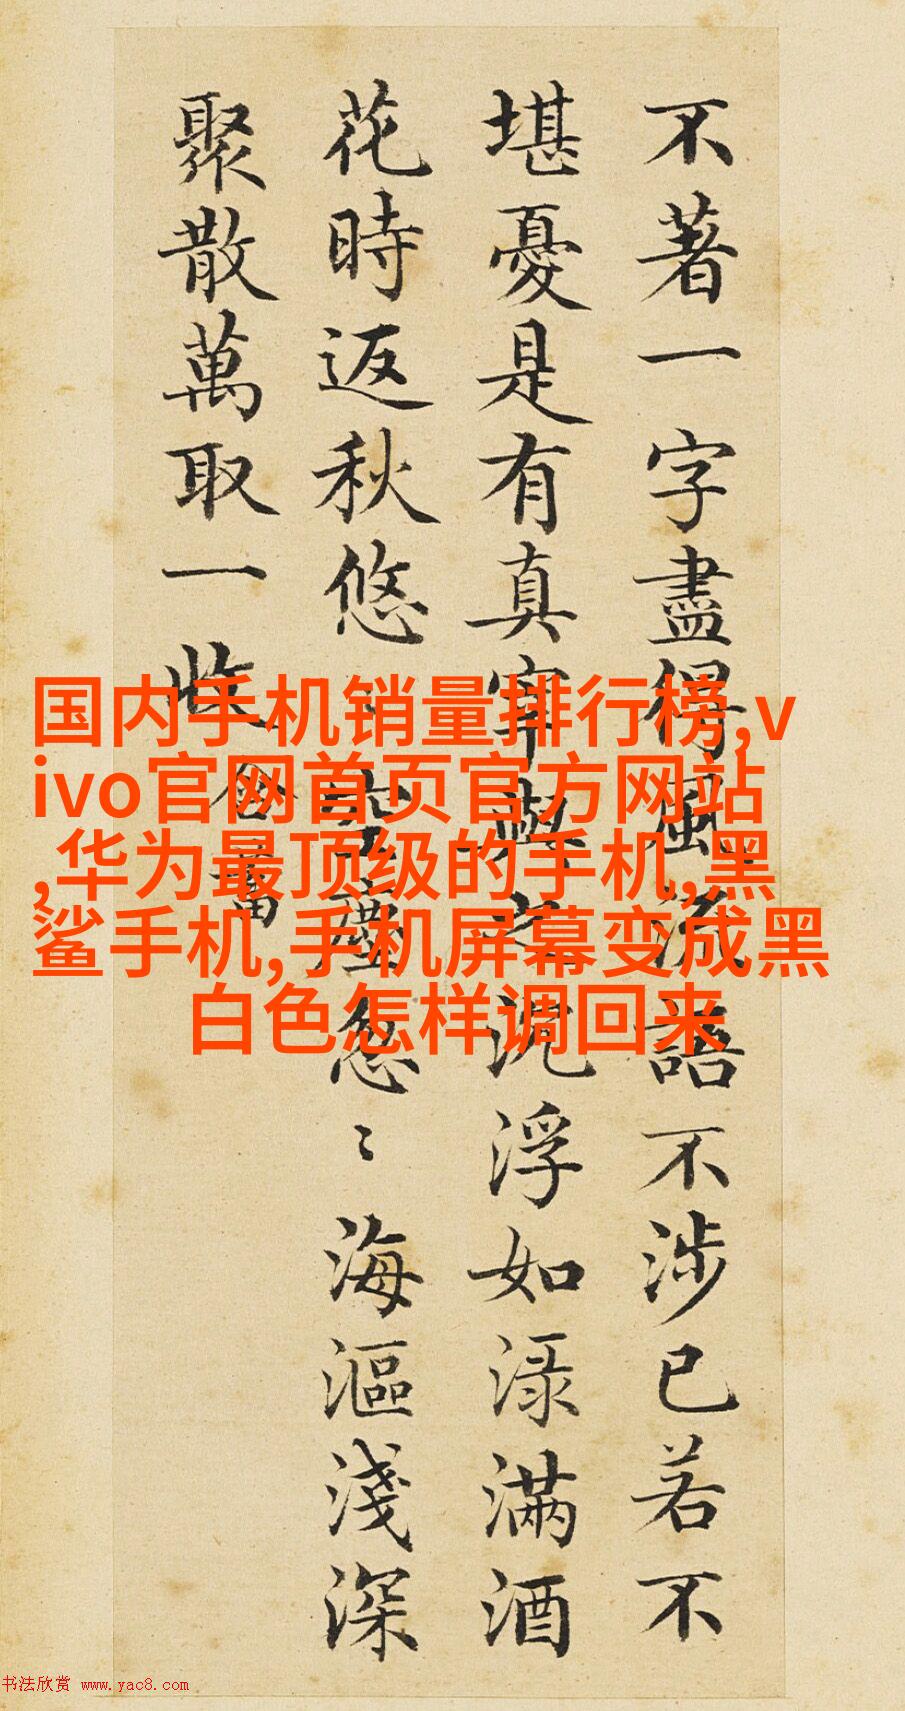 不著一字盡得風流語不涉已若不
堪憂是有真宰與之沉浮如淥滿酒
花時返秋悠〻空塵忽〻海漚淺深
聚散萬取一收 含蓄
国内手机销量排行榜,v
ivo官网首页官方网站
,华为最顶级的手机,黑
鲨手机,手机屏幕变成黑
白色怎样调回来
书法欣赏 www.yac8.com